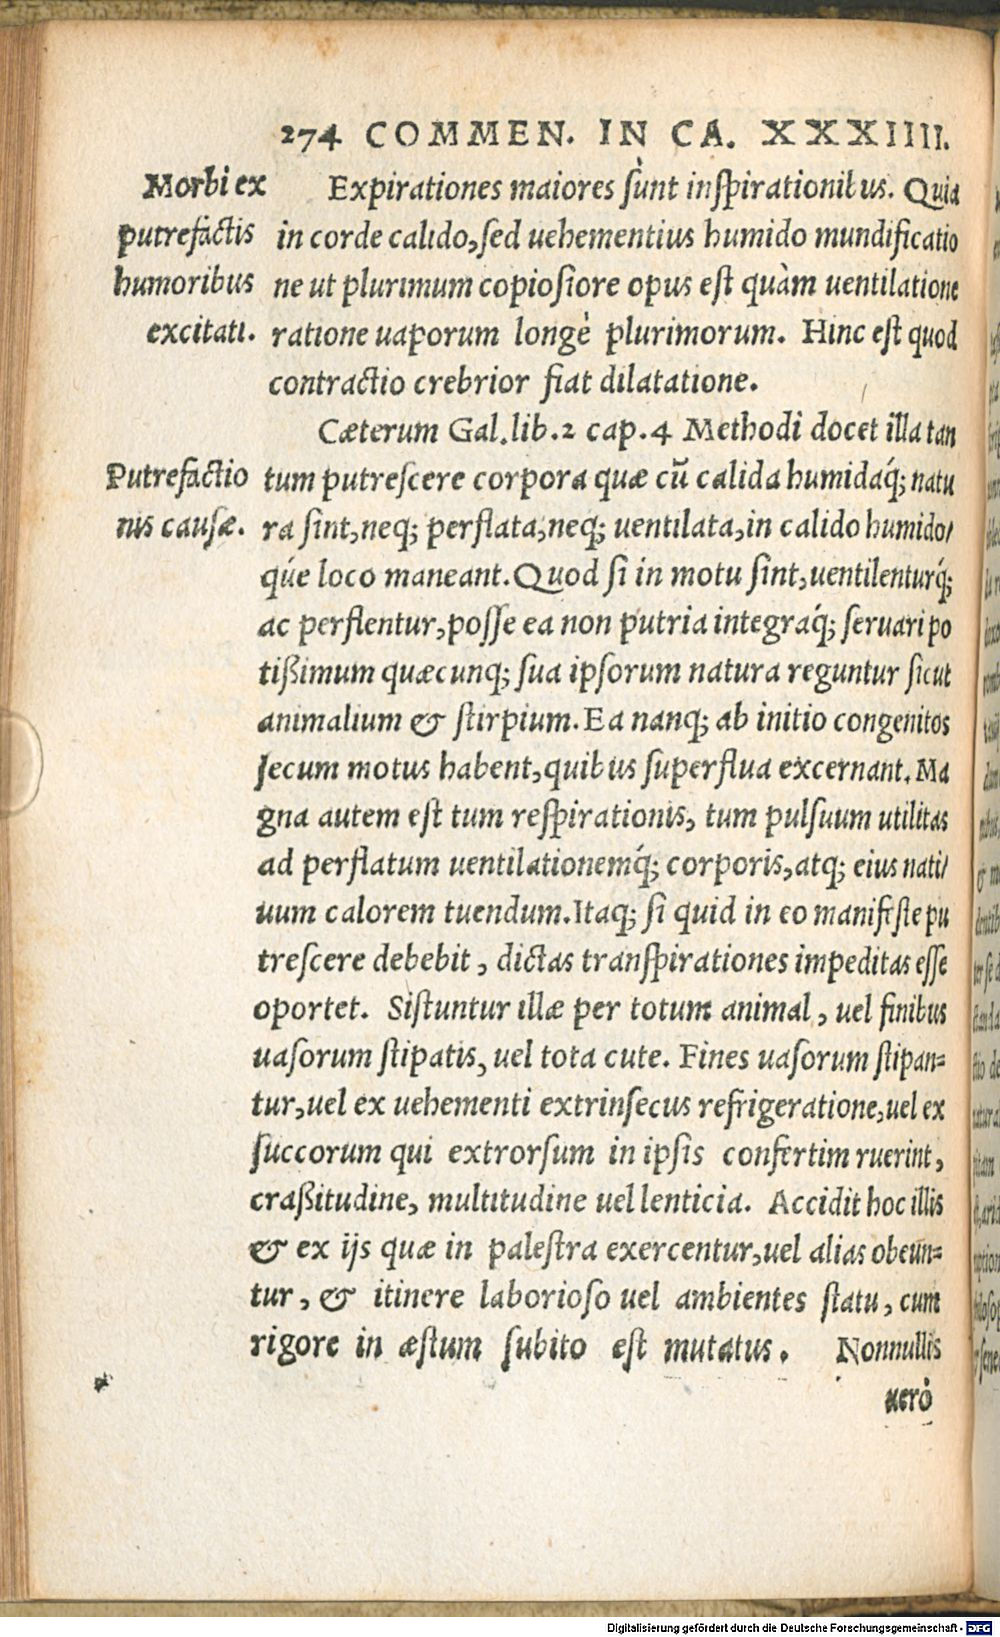 274 COMMEN. IN CA. XXXIIII.
Morbi ex
putrefactis
humoribus
excitati.
Expirationes maiores sùnt inspirationibus. Quia
in corde calido, sed uehementius humido mundificatio
ne ut plurimum copiosiore opus est quàm uentilatione
ratione uaporum longè plurimorum. Hinc est quod
contractio crebrior fiat dilatatione.
Cæterum Gal. lib. 2 cap. 4 Methodi docet illa tan
Putrefactio
nis causæ.
tum putrescere corpora quæ cū calida humidaq́; natu
ra sint, neq; perflata, neq; uentilata, in calido humido/
qúe loco maneant. Quod si in motu sint, uentilenturq́;
ac perflentur, posse ea non putria integraq́; seruari po
tißimum quæcunq; sua ipsorum natura reguntur sicut
animalium & stirpium. Ea nanq; ab initio congenitos
secum motus habent, quibus superflua excernant. Ma
gna autem est tum respirationis, tum pulsuum utilitas
ad perflatum uentilationemq́; corporis, atq; eius nati/
uum calorem tuendum. Itaq; si quid in eo manifeste pu
trescere debebit, dictas transpirationes impeditas esse
oportet. Sistuntur illæ per totum animal, uel finibus
uasorum stipatis, uel tota cute. Fines uasorum stipan=
tur, uel ex uehementi extrinsecus refrigeratione, uel ex
succorum qui extrorsum in ipsis confertim ruerint,
craßitudine, multitudine uel lenticia. Accidit hoc illis
& ex ijs quæ in palestra exercentur, uel alias obeun=
tur, & itinere laborioso uel ambientes statu, cum
rigore in æstum subito est mutatus. Nonnullis
uerò
Digitalisierung gefördert durch die Deutsche Forschungsgemeinschaft - DFG